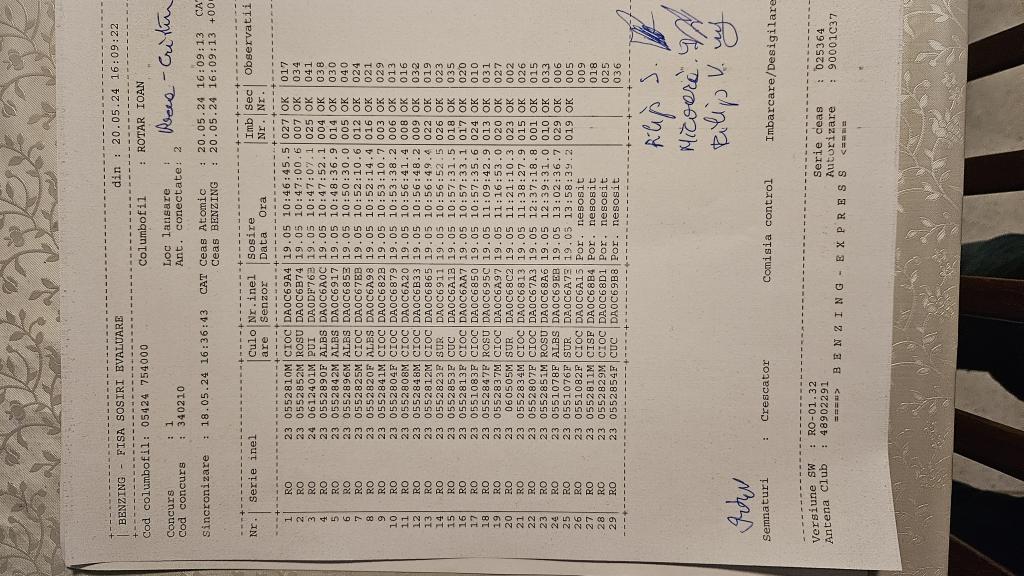 din : 20.05.24 16:09:22
| BENZING - FISA SOSIRI EVALUARE
Cod columbofil: 05424 754000 Columbofil : ROTAR IOAN
Concurs : 1 Loc lansare :
Cod concurs : 340210 Ant. conectate: 2
Sincronizare : 18.05.24 16:36:43 CAT Ceas Atomic : 20.05.24 16:09:13 CAT
Ceas BENZING : 20.05.24 16:09:13
Nr.| Serie inel |Culo|Nr.inel |Sosire |Imb|Sec| Observatii
|are |Senzor |Data Ora |Nr.|Nr.|
1 RO 23 0552810M CIOC DA0C69A4 19.05 10:46:45.5 027 OK 017
2 RO 23 0552852M ROSU DA0C6B74 19.05 10:47:00.6 007 OK 034
3 RO 24 0612401M PUI DA0DF76B 19.05 10:47:07.1 025 OK 041
4 RO 23 0552890F ALBS DA0C6A0C 19.05 10:47:52.1 004 OK 038
5 RO 23 0552842M ALBS DA0C6917 19.05 10:48:36.9 014 OK 030
6 RO 23 0552896M ALBS DA0C685E 19.05 10:50:30.0 005 OK 040
7 RO 23 0552825M CIOC DA0C67EB 19.05 10:52:10.6 012 OK 024
8 RO 23 0552820F ALBS DA0C6A98 19.05 10:52:14.4 016 OK 021
9 RO 23 0552841M CIOC DA0C682B 19.05 10:53:10.7 003 OK 029
10 RO 23 0552804F CIOC DA0C6879 19.05 10:53:38.2 006 OK 013
11 RO 23 0552808M CIOC DA0C6A20 19.05 10:56:41.4 008 OK 016
12 RO 23 0552848M CIOC DA0C6B33 19.05 10:56:48.2 009 OK 032
13 RO 23 0552812M CIOC DA0C6865 19.05 10:56:49.4 022 OK 019
14 RO 23 0552823F SUR DA0C6911 19.05 10:56:52.5 026 OK 023
15 RO 23 0552853F CUC DA0C6A1B 19.05 10:57:31.5 018 OK 035
16 RO 23 0552813F CIOC DA0C6AA7 19.05 10:57:33.1 017 OK 020
17 RO 23 0551083F CIOC DA0C6A50 19.05 10:57:35.6 024 OK 010
18 RO 23 0552847F ROSU DA0C695C 19.05 11:09:42.9 013 OK 031
19 RO 23 0552837M CIOC DA0C6A97 19.05 11:16:53.0 020 OK 027
20 RO 23 060505M SUR DA0C68C2 19.05 11:21:10.3 023 OK 002
21 RO 23 0552834M CIOC DA0C6813 19.05 11:38:27.9 015 OK 026
22 RO 23 0552807F CIOC DA0C67A3 19.05 11:37:18.8 001 OK 015
23 RO 23 0552851M ROSU DA0C68A6 19.05 12:39:33.1 010 OK 033
24 RO 23 0551078F ALBS DA0C69EB 19.05 13:02:36.7 029 OK 006
25 RO 23 0551076F SUR DA0C6A7E 19.05 13:58:39.2 019 OK 005
26 RO 23 0551082F CIOC DA0C6A15 Por. nesosit 009
27 RO 23 0552811M CISF DA0C68B4 Por. nesosit 018
28 RO 23 0552829M CIOC DA0C68D1 Por. nesosit 025
29 RO 23 0552854F CUC DA0C69B8 Por. nesosit 036
Filip S.
Filip V.
Semnaturi : Crescator Comisia control Imbarcare/Desigilare
Versiune SW : RO-01.32 Serie ceas : 025364
Antena Club : 48902291 Autorizare : 90001C37
====> B E N Z I N G - E X P R E S S <====